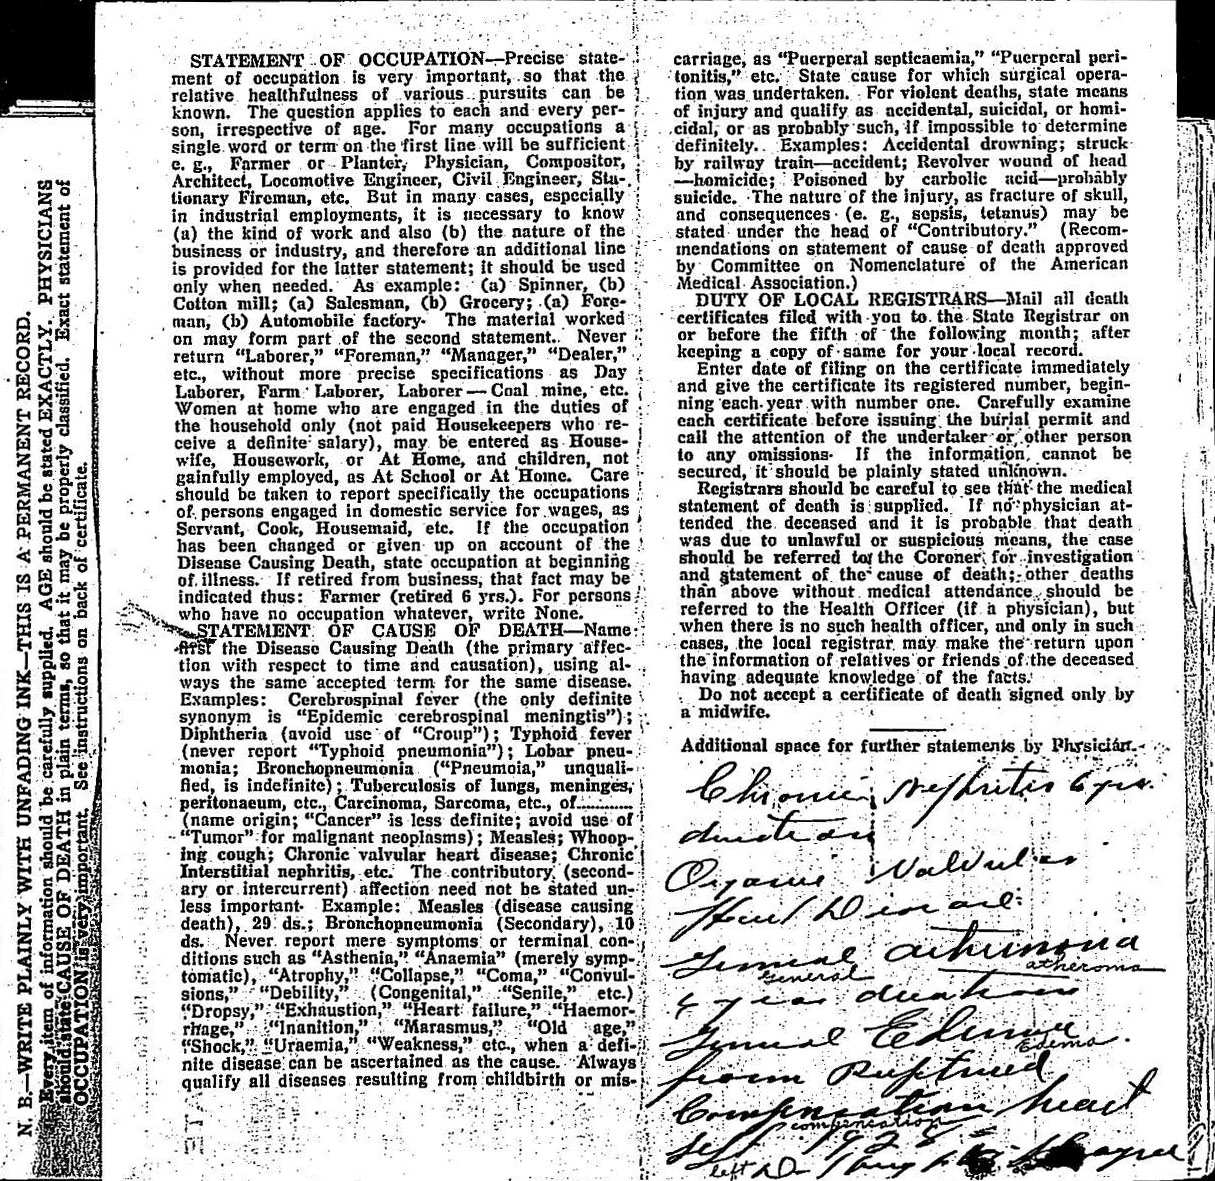 N. B.—WRITE PLAINLY WITH UNFADING INK—THIS IS A PERMANENT RECORD.
Every item of information should be carefully supplied. AGE should be stated EXACTLY. PHYSICIANS
should state CAUSE OF DEATH in plain terms, so that it may be properly classified. Exact statement of
OCCUPATION is very important. See instructions on back of certificate.
STATEMENT OF OCCUPATION—Precise state-
ment of occupation is very important, so that the
relative healthfulness of various pursuits can be
known. The question applies to each and every per-
son, irrespective of age. For many occupations a
single word or term on the first line will be sufficient
e. g., Farmer or Planter, Physician, Compositor,
Architect, Locomotive Engineer, Civil Engineer, Sta-
tionary Fireman, etc. But in many cases, especially
in industrial employments, it is necessary to know
(a) the kind of work and also (b) the nature of the
business or industry, and therefore an additional line
is provided for the latter statement; it should be used
only when needed. As example: (a) Spinner, (b)
Cotton mill; (a) Salesman, (b) Grocery; (a) Fore-
man, (b) Automobile factory. The material worked
on may form part of the second statement. Never
return "Laborer," "Foreman," "Manager," "Dealer,"
etc., without more precise specifications as Day
Laborer, Farm Laborer, Laborer—Coal mine, etc.
Women at home who are engaged in the duties of
the household only (not paid Housekeepers who re-
ceive a definite salary), may be entered as House-
wife, Housework, or At Home, and children, not
gainfully employed, as At School or At Home. Care
should be taken to report specifically the occupations
of persons engaged in domestic service for wages, as
Servant, Cook, Housemaid, etc. If the occupation
has been changed or given up on account of the
Disease Causing Death, state occupation at beginning
of illness. If retired from business, that fact may be
indicated thus: Farmer (retired 6 yrs.). For persons
who have no occupation whatever, write None.
STATEMENT OF CAUSE OF DEATH—Name
first the Disease Causing Death (the primary affec-
tion with respect to time and causation), using al-
ways the same accepted term for the same disease.
Examples: Cerebrospinal fever (the only definite
synonym is "Epidemic cerebrospinal meningtis");
Diphtheria (avoid use of "Croup"); Typhoid fever
(never report "Typhoid pneumonia"); Lobar pneu-
monia; Bronchopneumonia ("Pneumoia," unquali-
fied, is indefinite); Tuberculosis of lungs, meninges,
peritonaeum, etc., Carcinoma, Sarcoma, etc., of..........
(name origin; "Cancer" is less definite; avoid use of
"Tumor" for malignant neoplasms); Measles; Whoop-
ing cough; Chronic valvular heart disease; Chronic
Interstitial nephritis, etc. The contributory (second-
ary or intercurrent) affection need not be stated un-
less important. Example: Measles (disease causing
death), 29 ds.; Bronchopneumonia (Secondary), 10
ds. Never report mere symptoms or terminal con-
ditions such as "Asthenia," "Anaemia" (merely symp-
tomatic), "Atrophy," "Collapse," "Coma," "Convul-
sions," "Debility," (Congenital," "Senile," etc.)
"Dropsy," "Exhaustion," "Heart failure," "Haemor-
rhage," "Inanition," "Marasmus," "Old age,"
"Shock," "Uraemia," "Weakness," etc., when a defi-
nite disease can be ascertained as the cause. Always
qualify all diseases resulting from childbirth or mis-
carriage, as "Puerperal septicaemia," "Puerperal peri-
tonitis," etc. State cause for which surgical opera-
tion was undertaken. For violent deaths, state means
of injury and qualify as accidental, suicidal, or homi-
cidal, or as probably such, if impossible to determine
definitely. Examples: Accidental drowning; struck
by railway train—accident; Revolver wound of head
—homicide; Poisoned by carbolic acid—probably
suicide. The nature of the injury, as fracture of skull,
and consequences (e. g., sepsis, tetanus) may be
stated under the head of "Contributory." (Recom-
mendations on statement of cause of death approved
by Committee on Nomenclature of the American
Medical Association.)
DUTY OF LOCAL REGISTRARS—Mail all death
certificates filed with you to the State Registrar on
or before the fifth of the following month; after
keeping a copy of same for your local record.
Enter date of filing on the certificate immediately
and give the certificate its registered number, begin-
ning each year with number one. Carefully examine
each certificate before issuing the burial permit and
call the attention of the undertaker or other person
to any omissions. If the information cannot be
secured, it should be plainly stated unknown.
Registrars should be careful to see that the medical
statement of death is supplied. If no physician at-
tended the deceased and it is probable that death
was due to unlawful or suspicious means, the case
should be referred to the Coroner for investigation
and statement of the cause of death; other deaths
than above without medical attendance should be
referred to the Health Officer (if a physician), but
when there is no such health officer, and only in such
cases, the local registrar may make the return upon
the information of relatives or friends of the deceased
having adequate knowledge of the facts.
Do not accept a certificate of death signed only by
a midwife.
Additional space for further statements by Physician.
Chronic Nephritis 6 yrs.
duration
Organic Valvular
Heart Disease
General atheroma
general atheroma
4 year duration
General Edema
Edema
from Ruptured
Compensation heart
compensation
left Dr